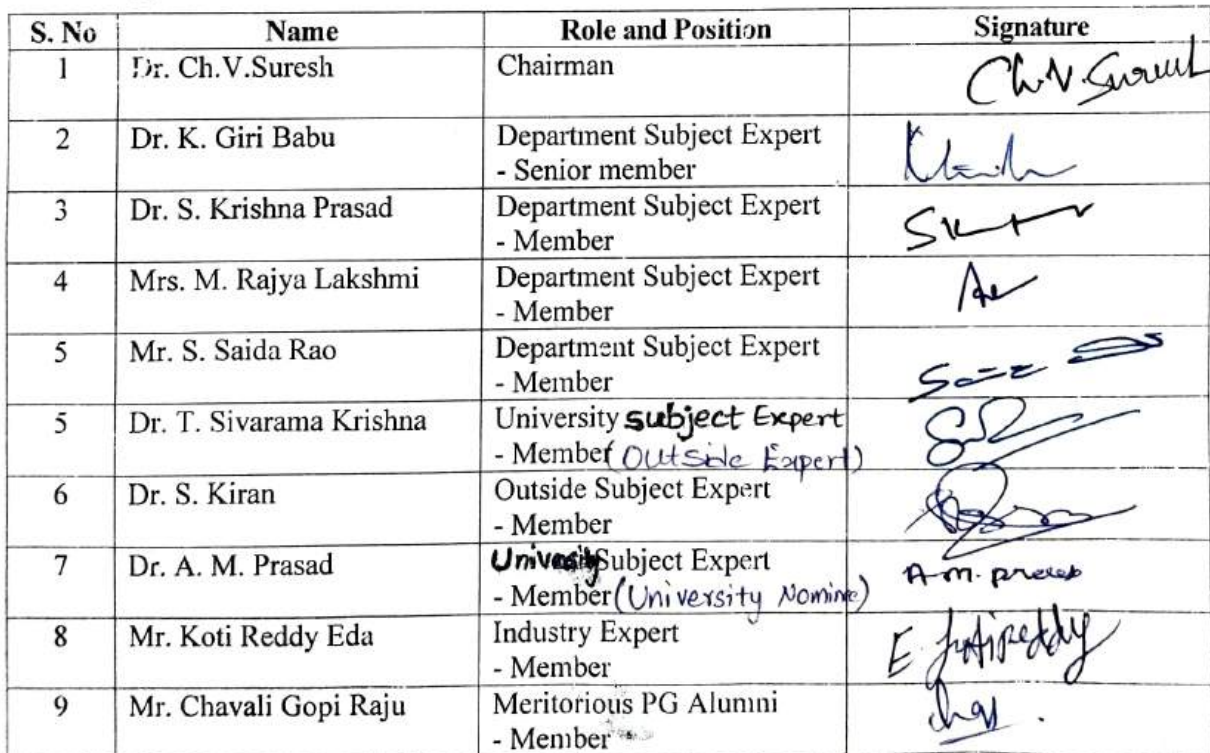 S. No Name Role and Position Signature
1 Dr. Ch.V.Suresh Chairman Ch.V.Suresh
2 Dr. K. Giri Babu Department Subject Expert
- Senior member
3 Dr. S. Krishna Prasad Department Subject Expert
- Member
4 Mrs. M. Rajya Lakshmi Department Subject Expert
- Member
5 Mr. S. Saida Rao Department Subject Expert
- Member
5 Dr. T. Sivarama Krishna University subject Expert
- Member (Outside Expert)
6 Dr. S. Kiran Outside Subject Expert
- Member
7 Dr. A. M. Prasad University Subject Expert A.m. prasad
- Member (University Nominee)
8 Mr. Koti Reddy Eda Industry Expert E. Kotireddy
- Member
9 Mr. Chavali Gopi Raju Meritorious PG Alumni
- Member